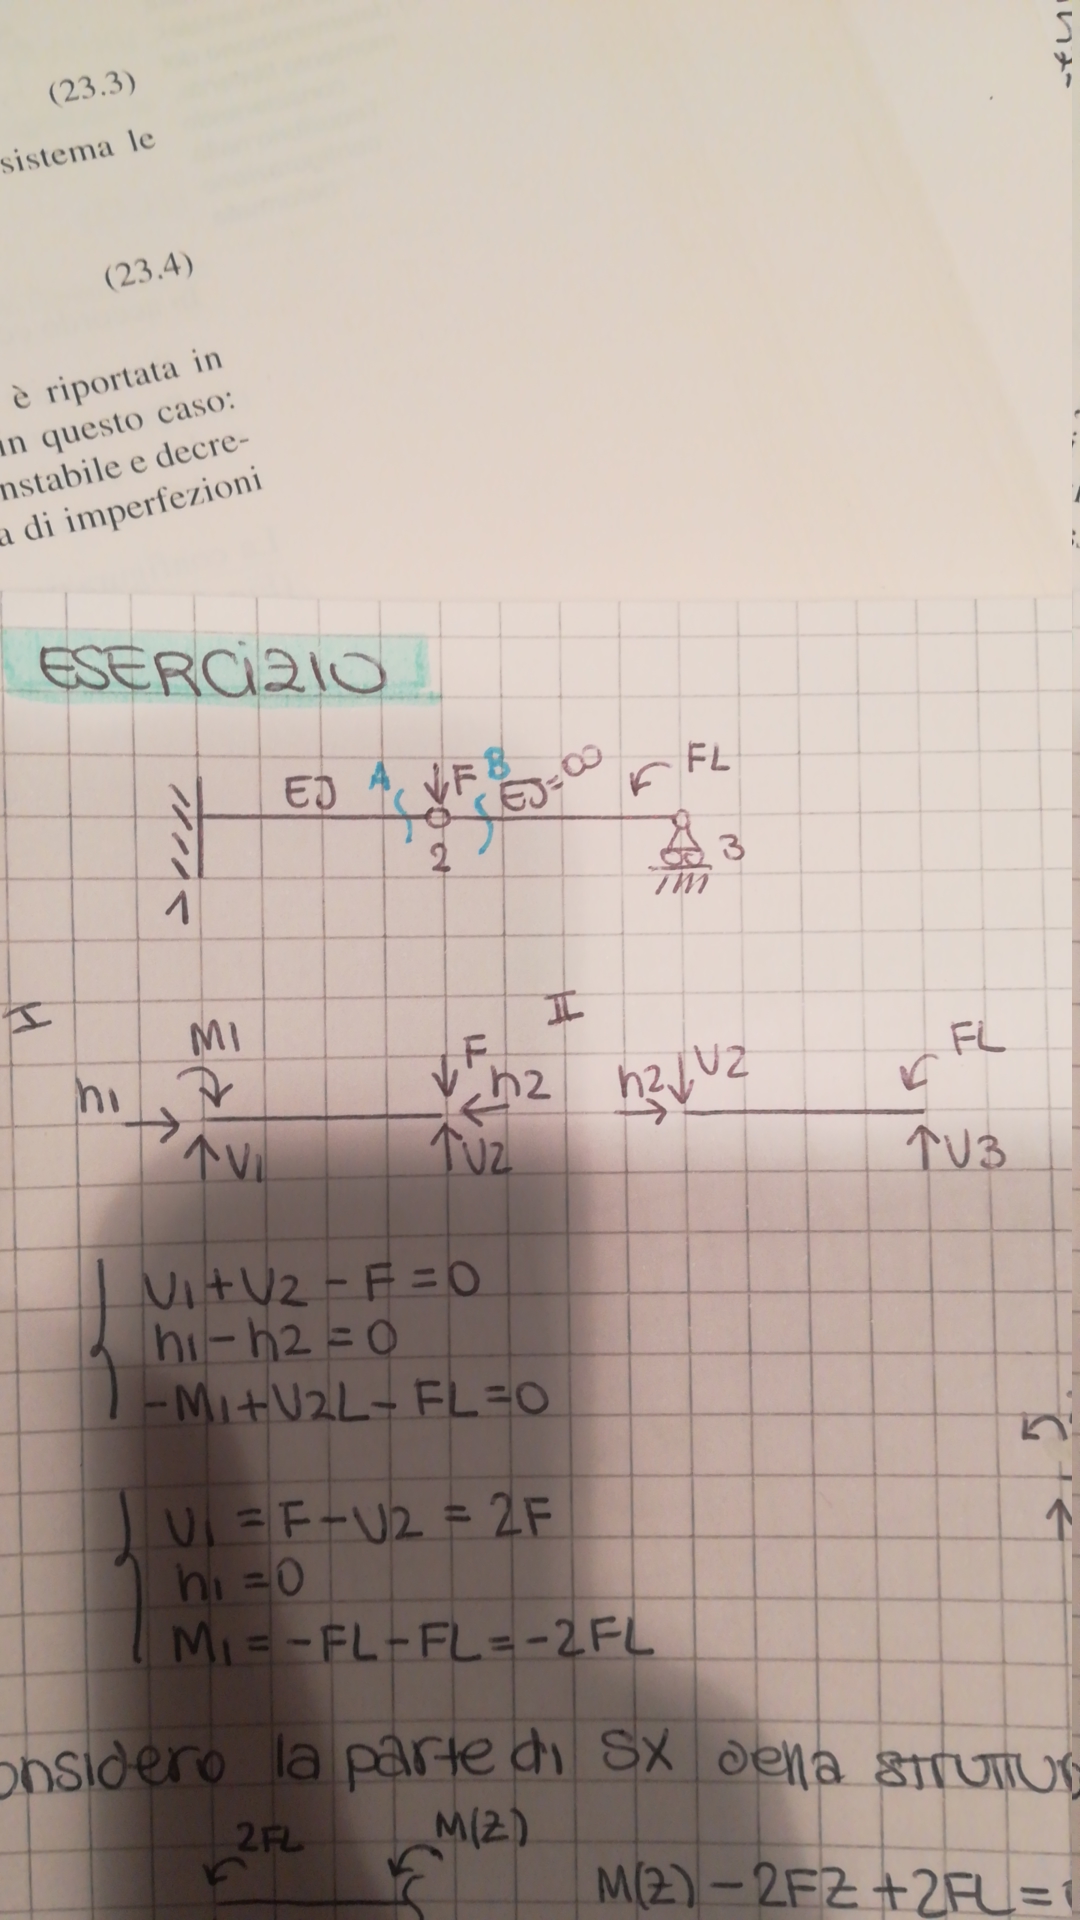 (23.3)
sistema le
(23.4)
è riportata in
in questo caso:
nstabile e decre-
a di imperfezioni
ESERCIZIO
EJ A F B EJ=∞ FL
1 2 3
I II
M1 F FL
h1 h2 h2 V2
V1 V2 V3
V1+V2-F=0
h1-h2=0
-M1+V2L-FL=0
V1=F-V2=2F
h1=0
M1=-FL-FL=-2FL
onsidero la parte di SX della STRUTTUR
2FL M(Z)
M(Z)-2FZ+2FL=